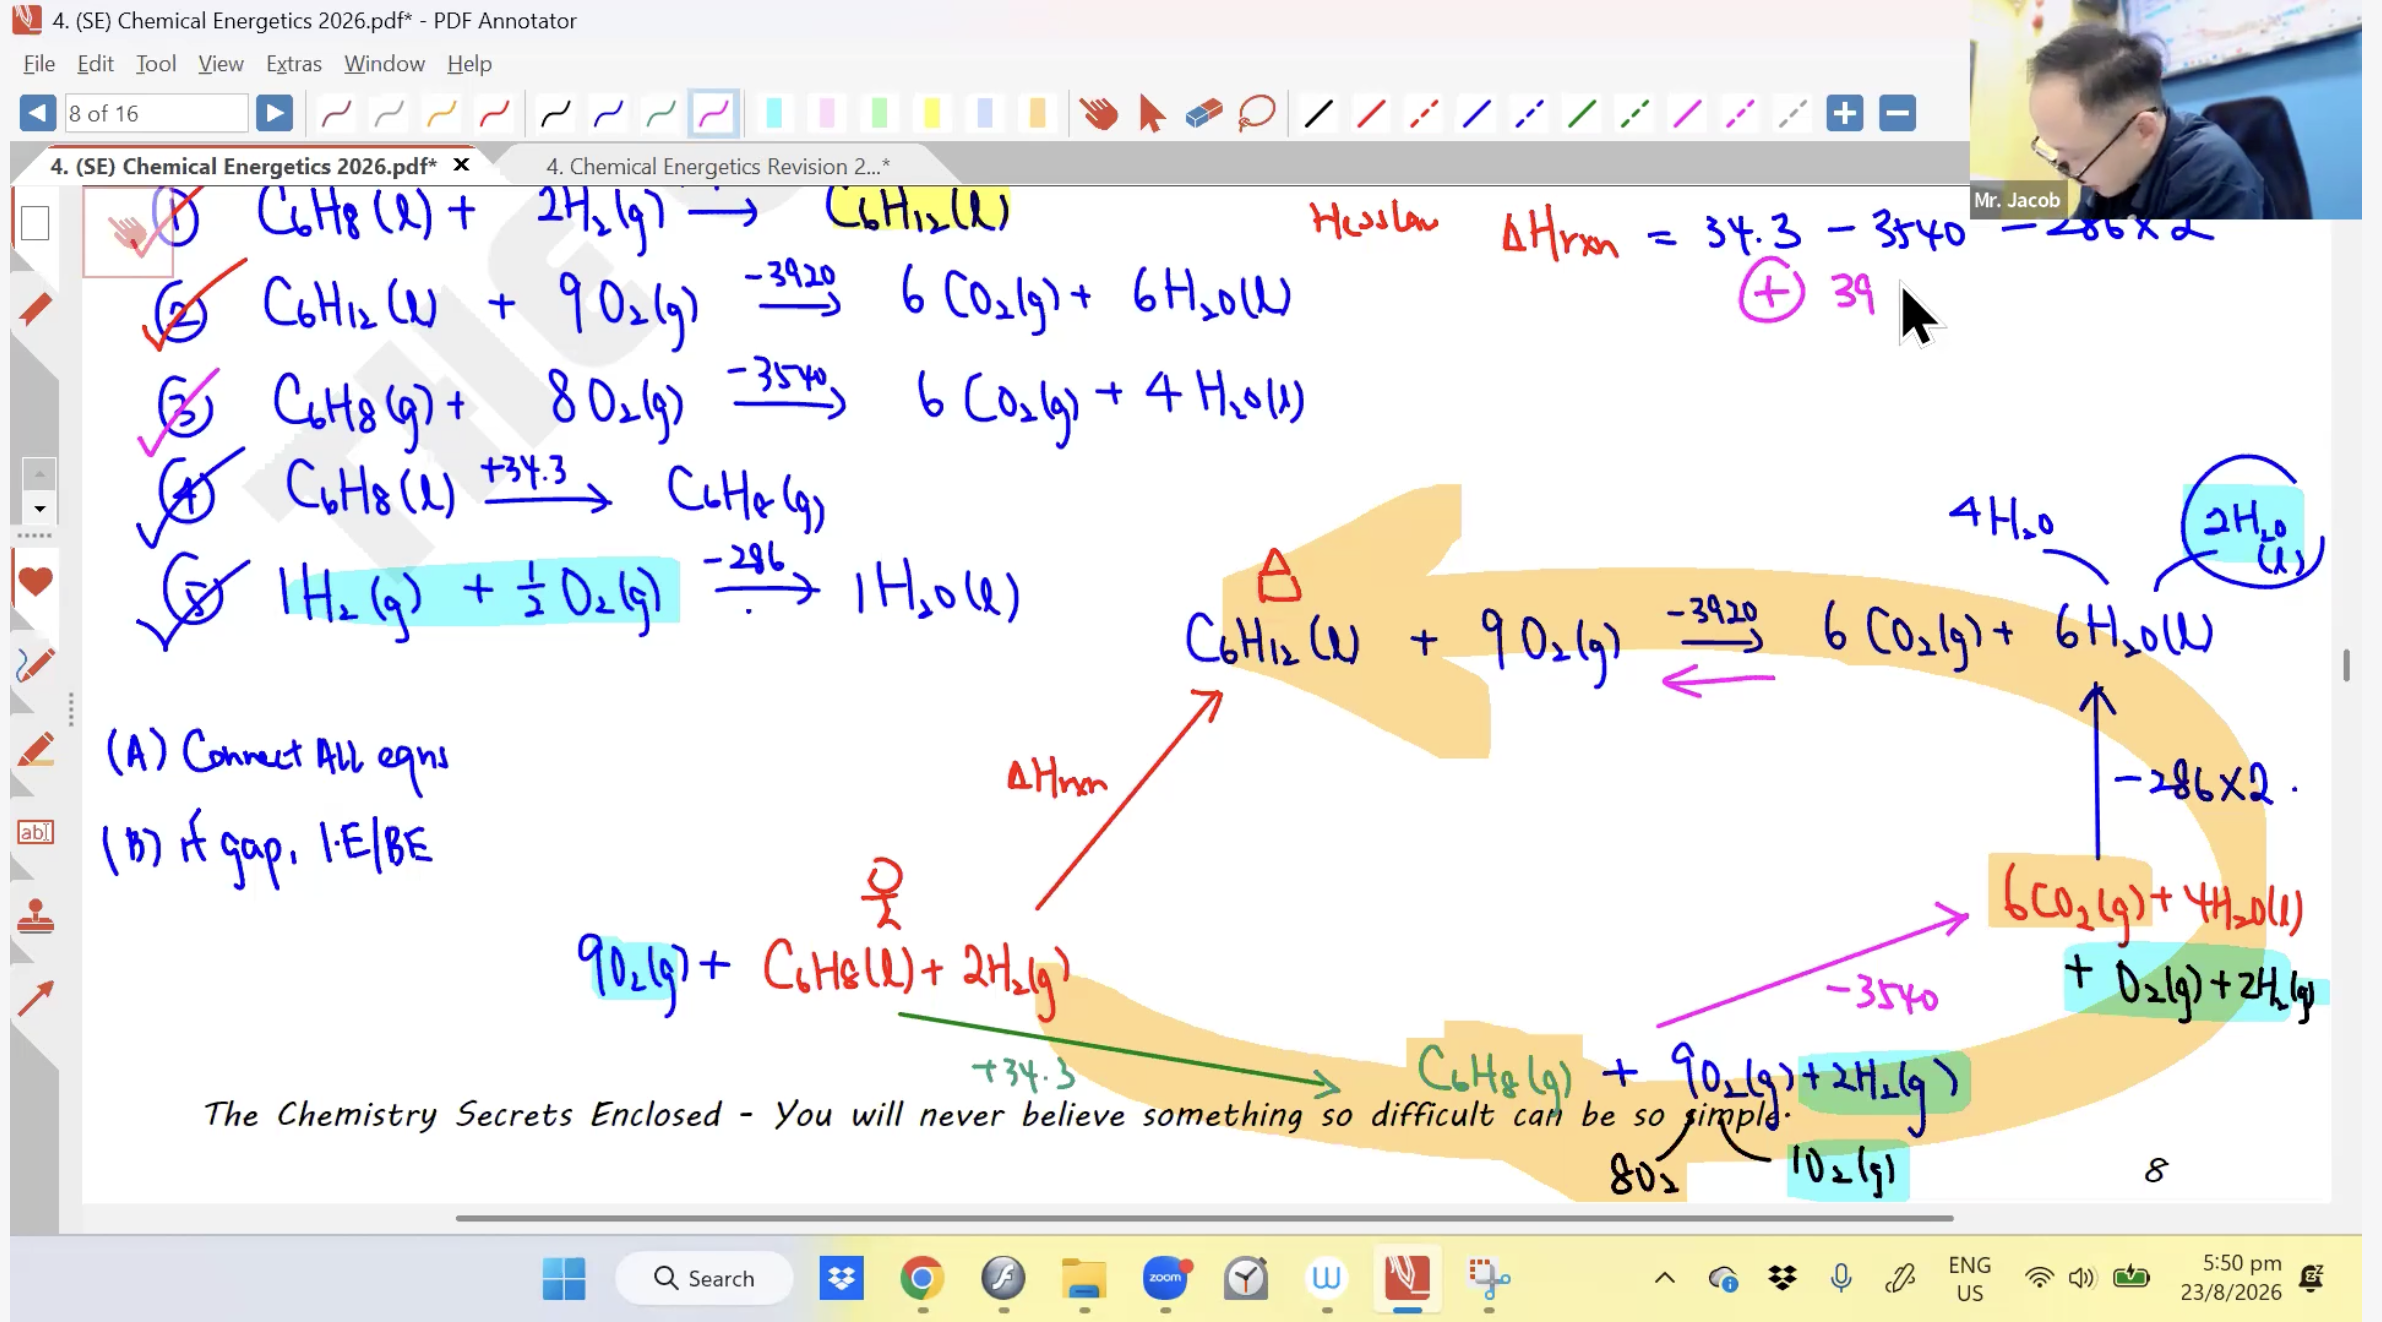 4. (SE) Chemical Energetics 2026.pdf* - PDF Annotator
File Edit Tool View Extras Window Help
8 of 16
4. (SE) Chemical Energetics 2026.pdf* 4. Chemical Energetics Revision 2...*
Mr. Jacob
① C₆H₈(l) + 2H₂(g) → C₆H₁₂(l)
Hess Law ΔHrxn = 34.3 - 3540 - 286×2
+ 39
② C₆H₁₂(l) + 9O₂(g) -3920 → 6CO₂(g) + 6H₂O(l)
③ C₆H₈(g) + 8O₂(g) -3540 → 6CO₂(g) + 4H₂O(l)
④ C₆H₈(l) +34.3 → C₆H₈(g)
⑤ 1H₂(g) + ½O₂(g) -286 → 1H₂O(l)
4H₂O 2H₂O(l)
C₆H₁₂(l) + 9O₂(g) -3920 → 6CO₂(g) + 6H₂O(l)
←
(A) Connect All eqns
ΔHrxn
-286×2.
(B) if gap, I.E/BE
6CO₂(g) + 4H₂O(l)
+ O₂(g) + 2H₂(g)
9O₂(g) + C₆H₈(l) + 2H₂(g)
-3540
+34.3
C₆H₈(g) + 9O₂(g) + 2H₂(g)
The Chemistry Secrets Enclosed - You will never believe something so difficult can be so simple.
8O₂ 1O₂(g)
8
Search
zoom
ENG
US
5:50 pm
23/8/2026